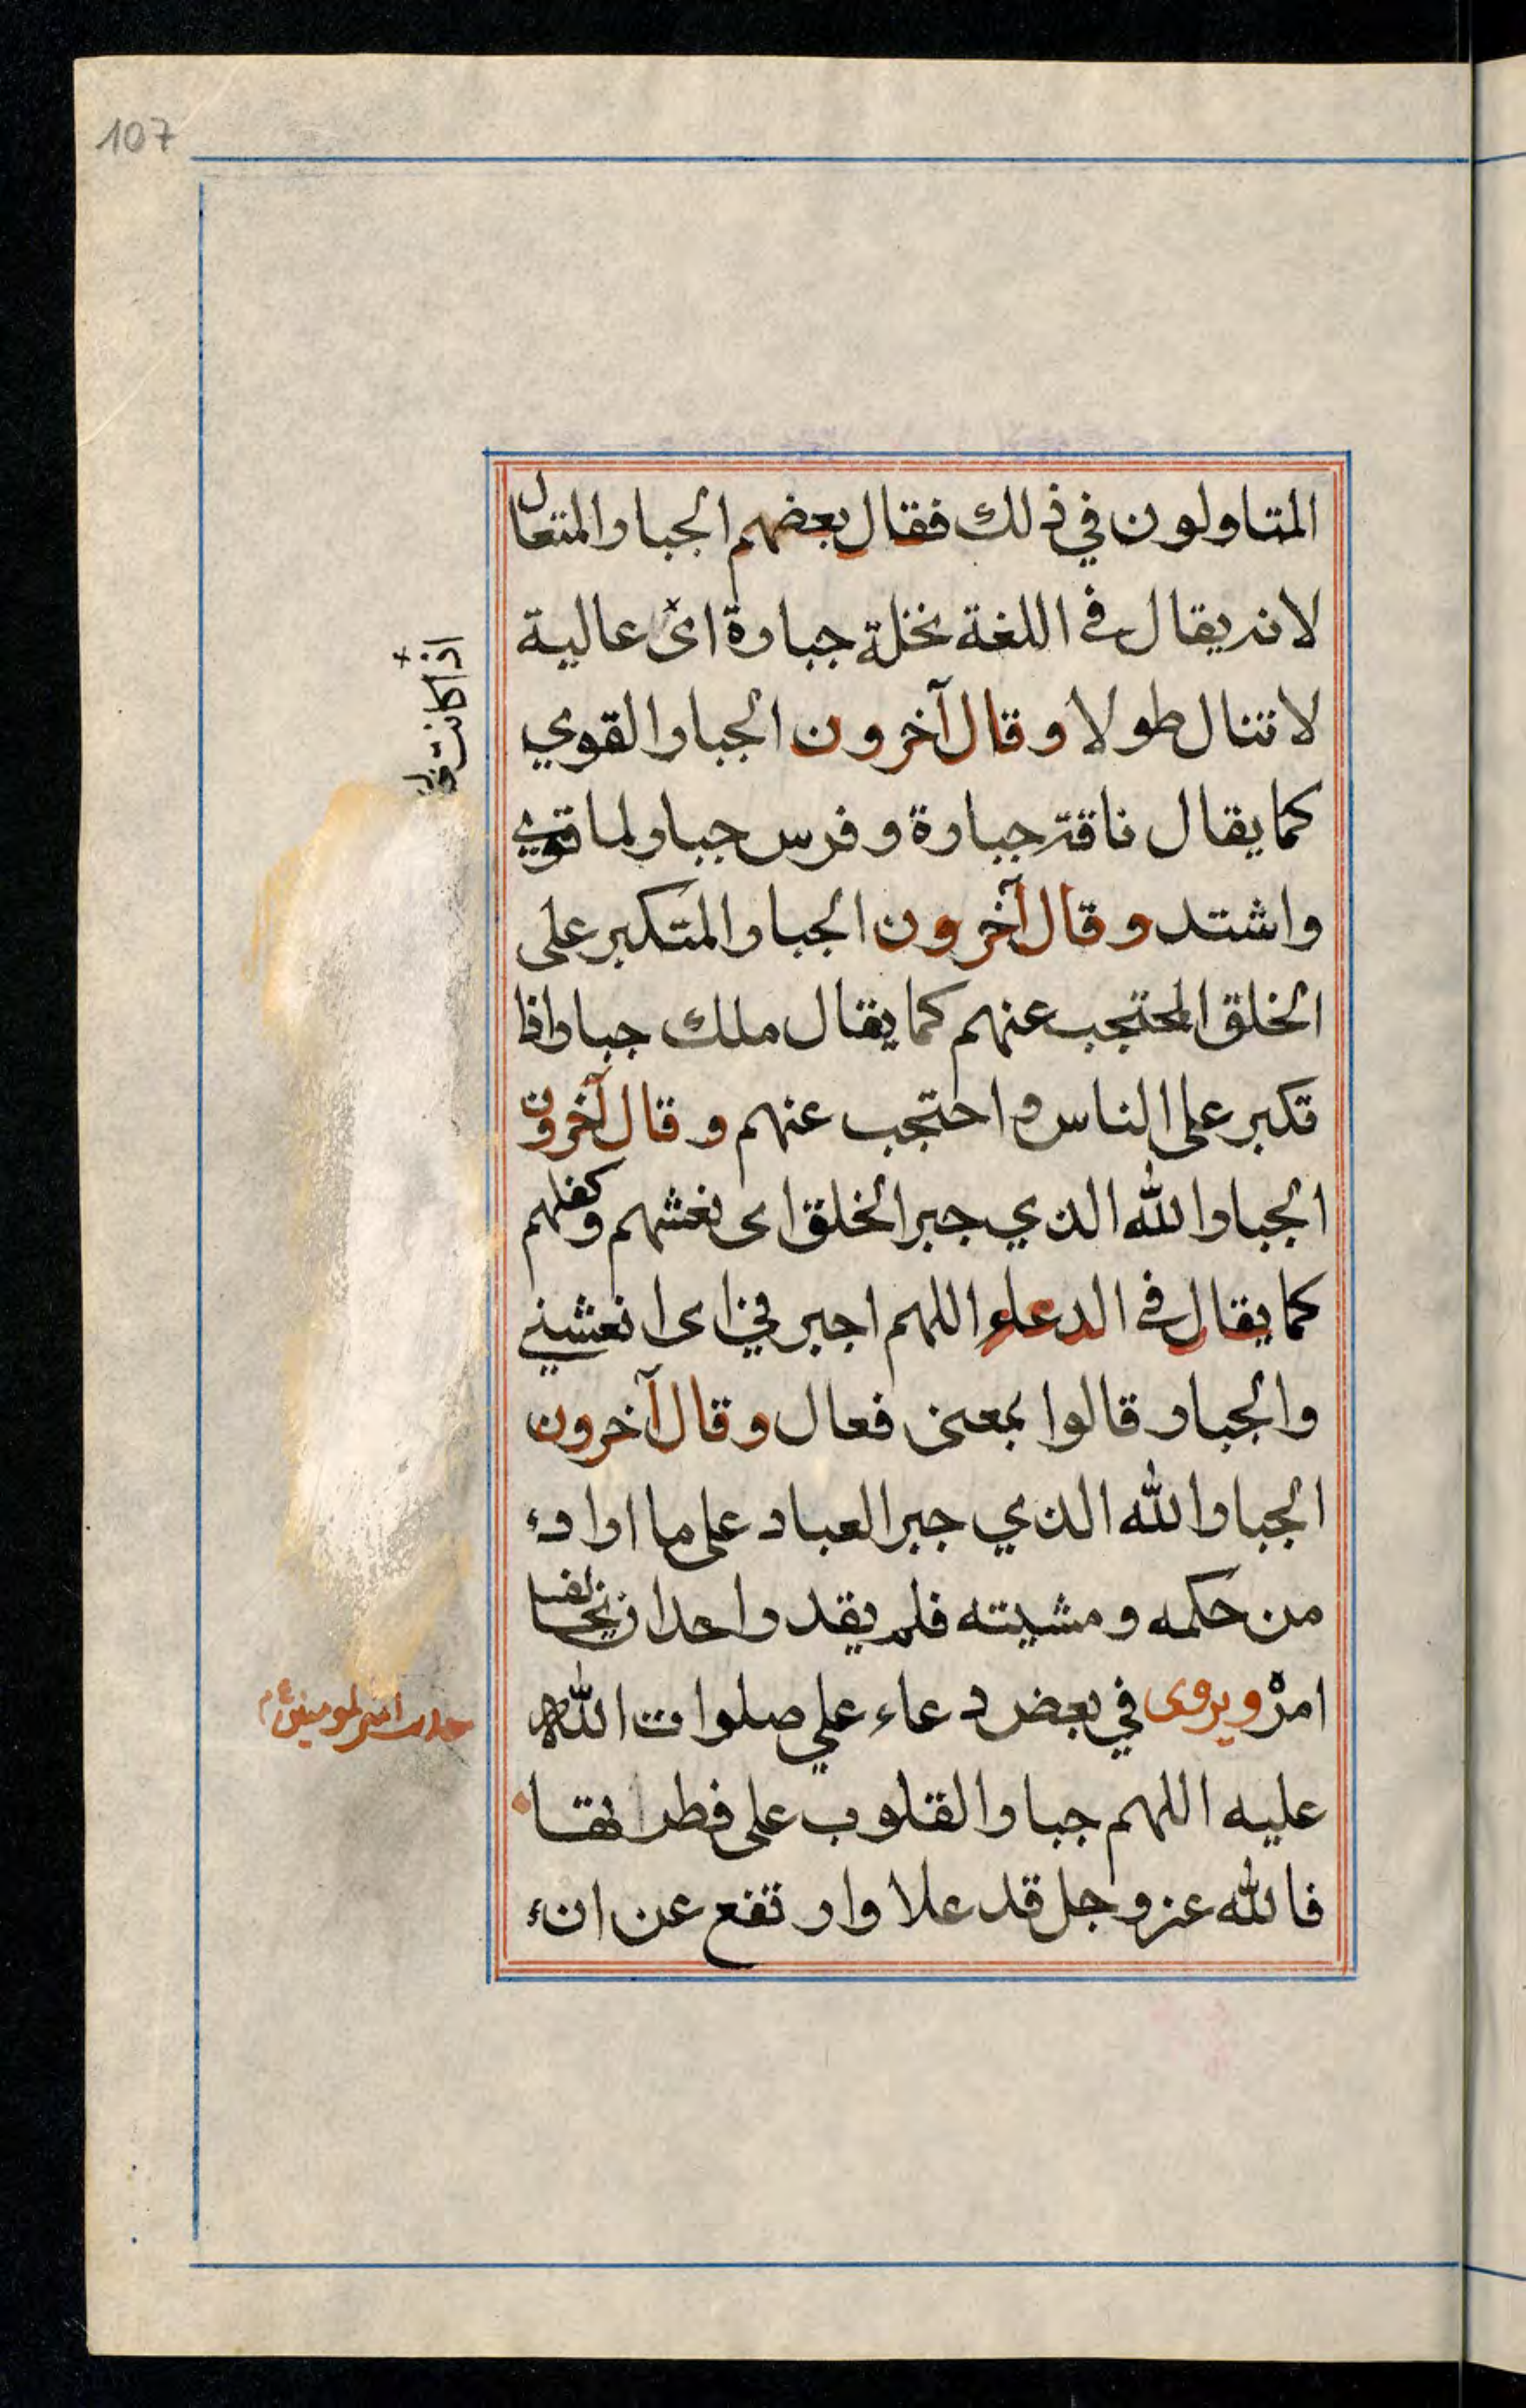 107
المتاولون في ذلك فقال بعضهم الجبار المتعال
لانه يقال في اللغة نخلة جبارة اى عالية
لا تنال طولا وقال آخرون الجبار القوي
كما يقال ناقة جبارة وفرس جبار لما قوي
واشتد وقال آخرون الجبار المتكبر على
الخلق المحتجب عنهم كما يقال ملك جبار اذا
تكبر على الناس واحتجب عنهم وقال آخرون
الجبار الله الذي جبر الخلق اى نعشهم وكفلهم
كما يقال في الدعاء اللهم اجبرني اى انعشني
والجبار قالوا بمعنى فعال وقال آخرون
الجبار الله الذي جبر العباد على ما اراد
من حكمه ومشيته فلم يقدر احد ان يخالف
امره ويروى في بعض دعاء علي صلوات الله
عليه اللهم جبار القلوب على فطراتها
فالله عز وجل قد علا وارتفع عن ان
اذا كانت
امير المومنين